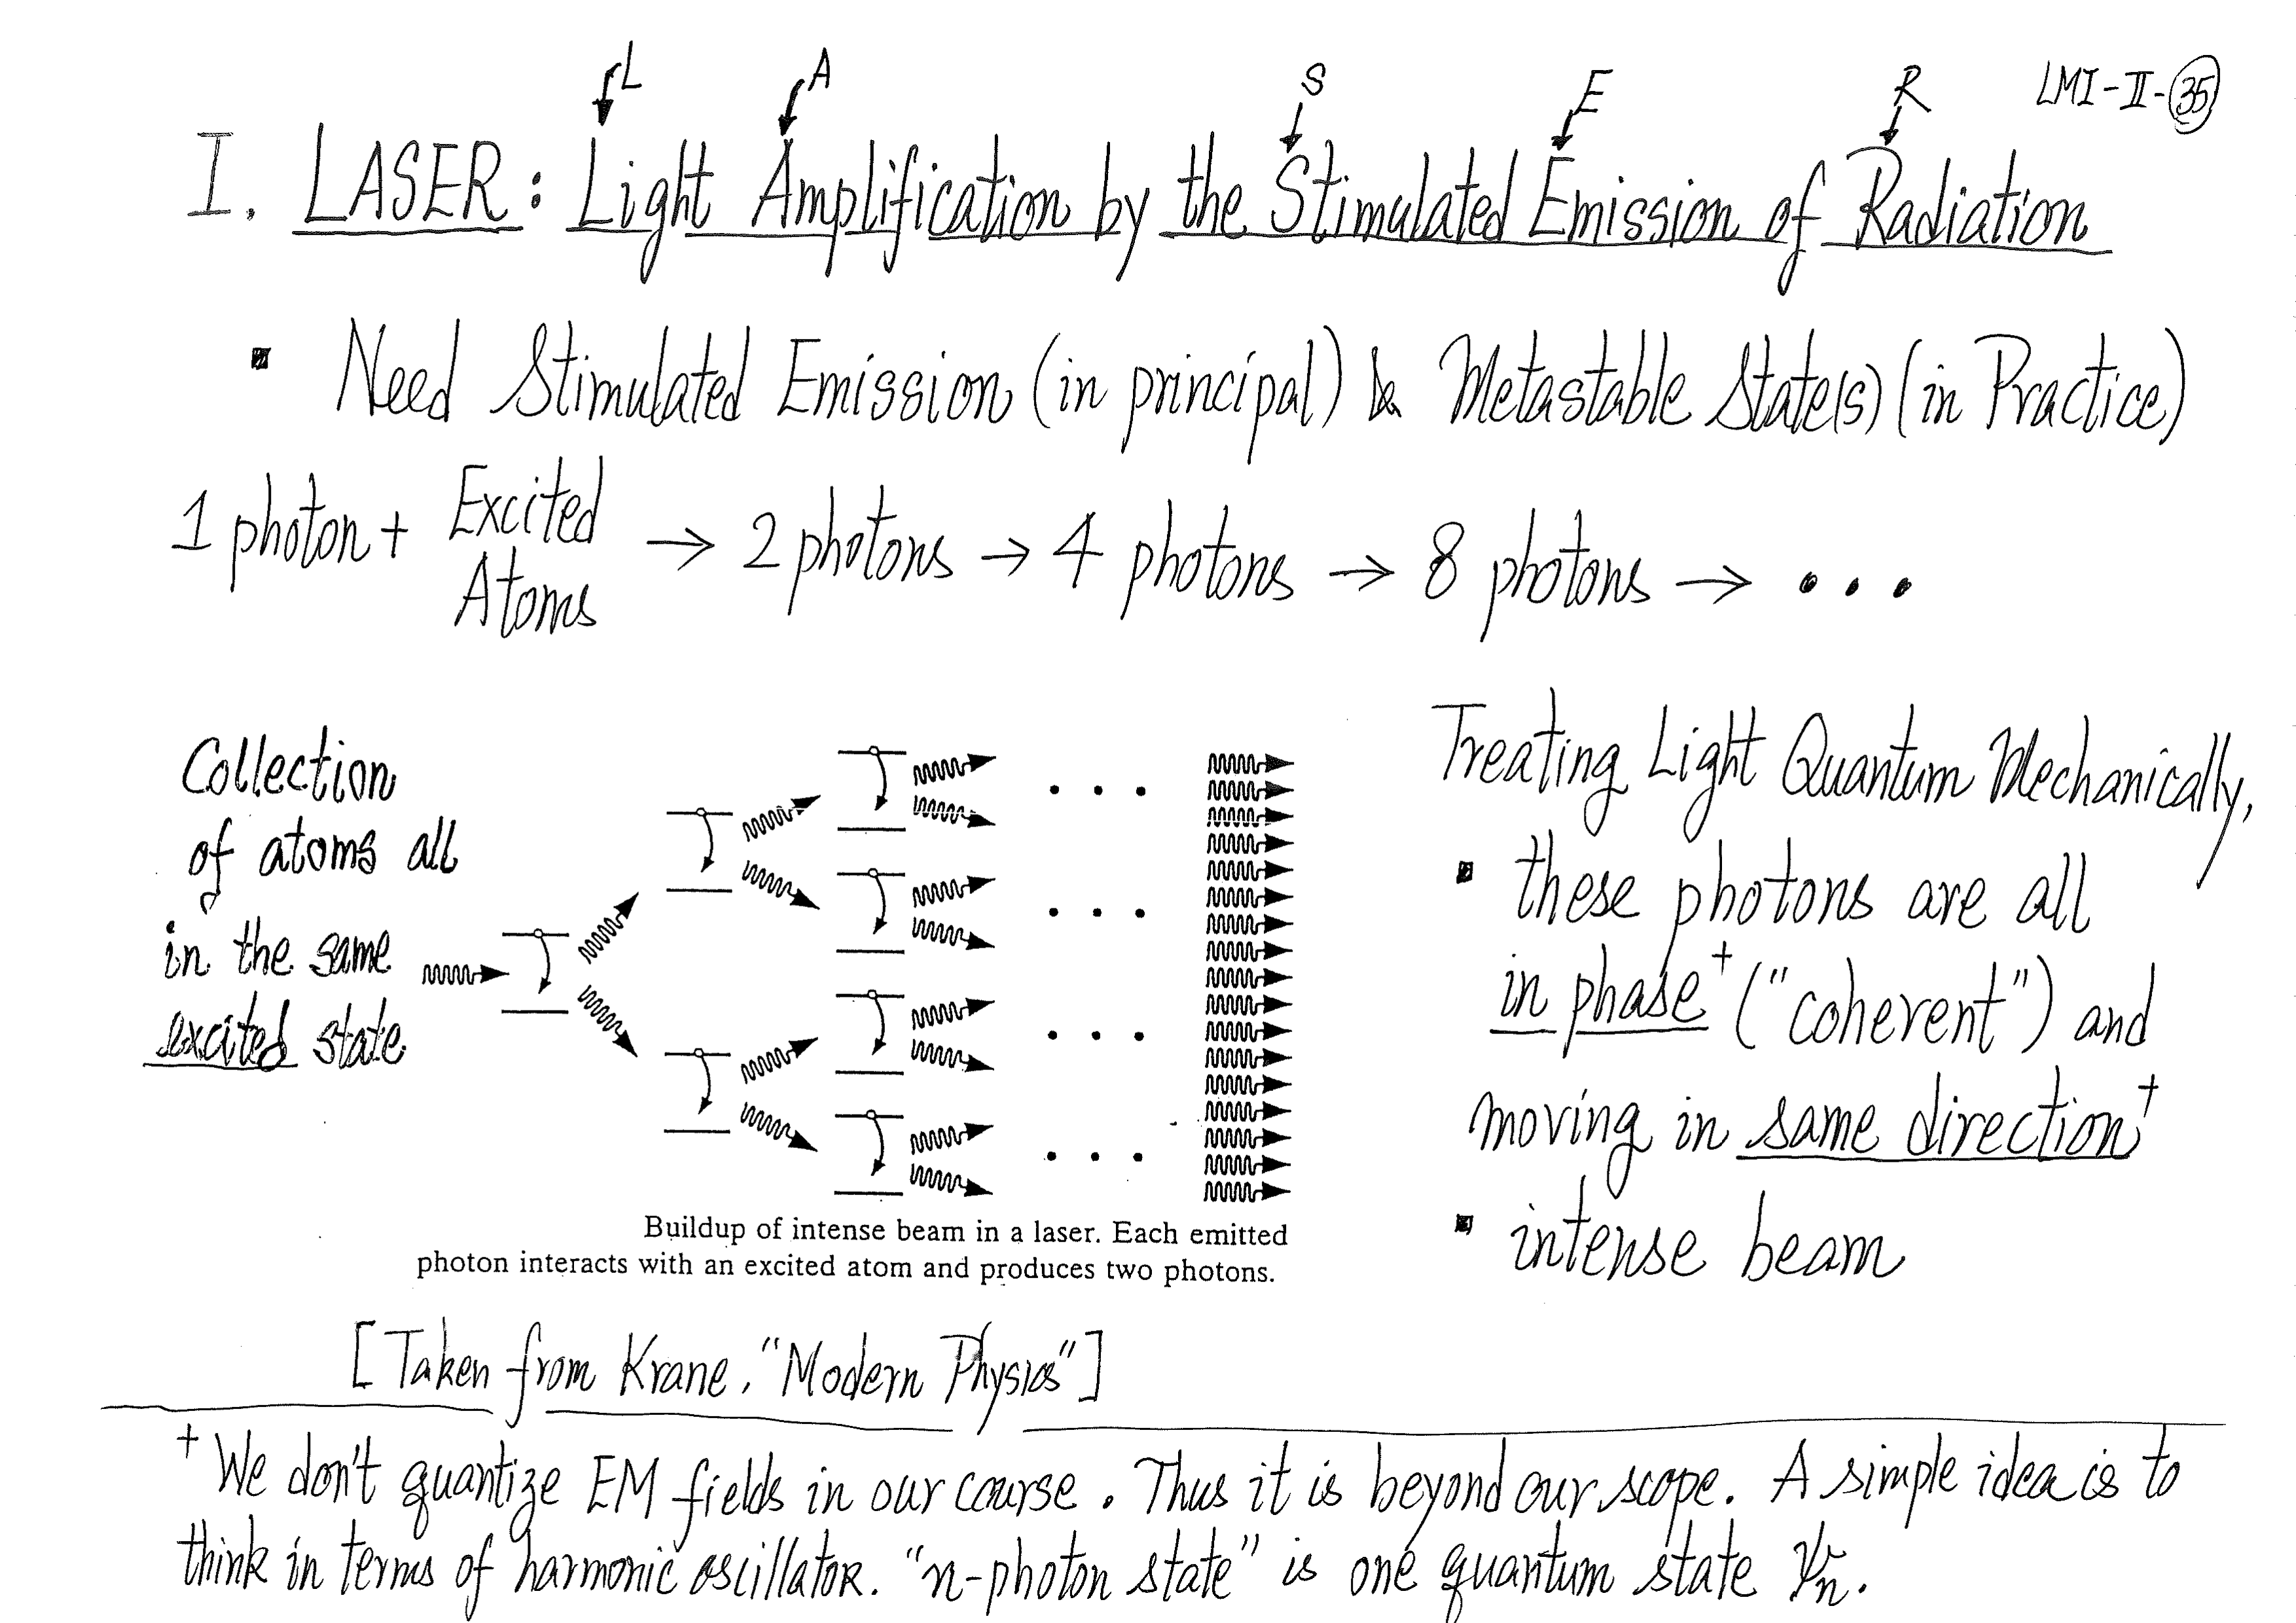 L A S E R LMI-II-35
I. LASER: Light Amplification by the Stimulated Emission of Radiation
▪ Need Stimulated Emission (in principal) & Metastable State(s) (in Practice)
1 photon + Excited Atoms → 2 photons → 4 photons → 8 photons → • • •
Collection
of atoms all
in the same
excited state
• • •
• • •
• • •
• • •
Buildup of intense beam in a laser. Each emitted
photon interacts with an excited atom and produces two photons.
[Taken from Krane, "Modern Physics"]
Treating Light Quantum Mechanically,
▪ these photons are all
in phase† ("coherent") and
moving in same direction†
▪ intense beam
† We don't quantize EM fields in our course. Thus it is beyond our scope. A simple idea is to
think in terms of harmonic oscillator. "n-photon state" is one quantum state ψₙ.